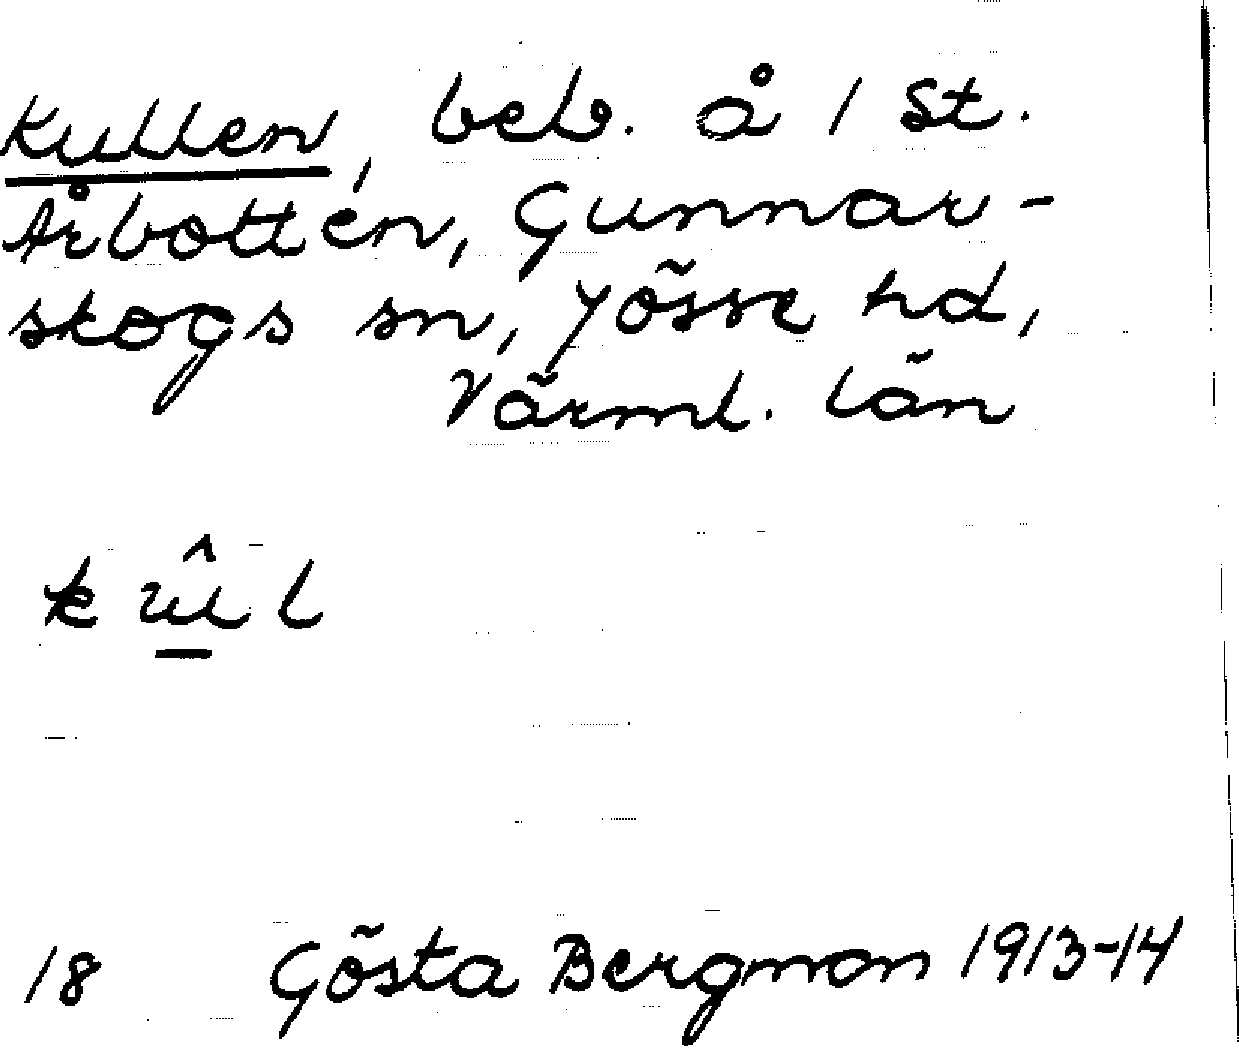 Kullen, beb. å 1 St.
Årbotten, Gunnar-
skogs sn, Jösse hd,
Värml. län
k û l
18 Gösta Bergman 1913-14